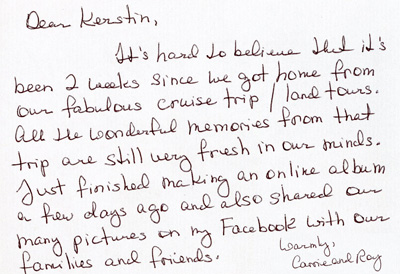 Dear Kerstin,
It's hard to believe that it's
been 2 weeks since we got home from
our fabulous cruise trip / land tours.
All the wonderful memories from that
trip are still very fresh in our minds.
Just finished making an online album
a few days ago and also shared our
many pictures on my Facebook with our
families and friends.
Warmly,
Carrie and Ray